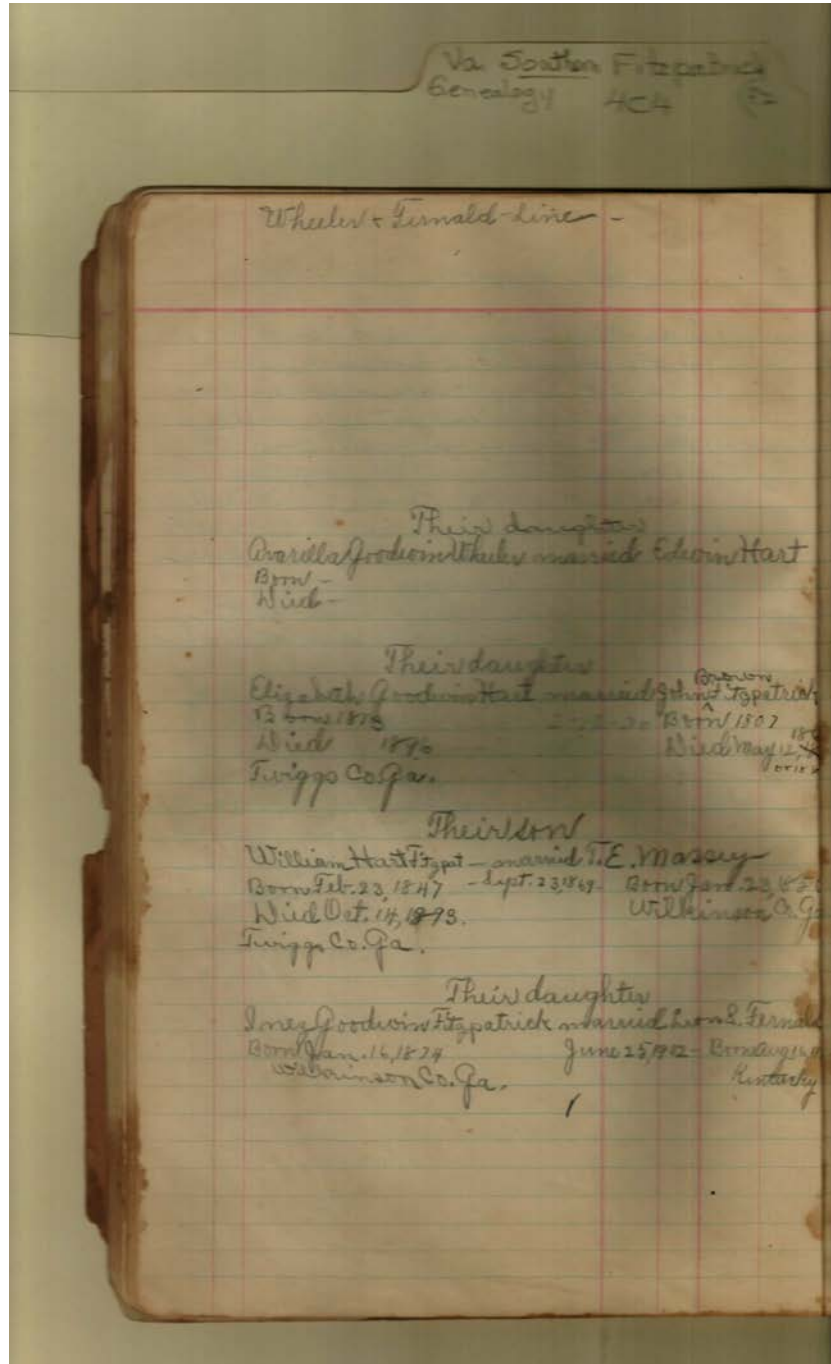 Va. Southern Fitzpatrick
Genealogy 4C4
Wheeler & Fernald Line -
Their daughter
Avarilla Goodwin Wheeler married Edwin Hart
Born -
Died -
Their daughter
Brown
Elizabeth Goodwin Hart married John ^ Fitzpatrick
Born 1807
Died Died May 12,
Twiggs Co. Ga.
Their son
William Hart Fitzpat - married T. E. Massey
Born Feb. 23, 1847 - Sept. 23, 1869 - Born Jan. 23,
Died Oct. 14, 1893. Wilkinson Co. Ga
Twiggs Co. Ga.
Their daughter
Inez Goodwin Fitzpatrick married Leon S. Fernald
Born Jan. 16, 1874 June 25, 1912 - Born Aug
Wilkinson Co. Ga. Kentucky